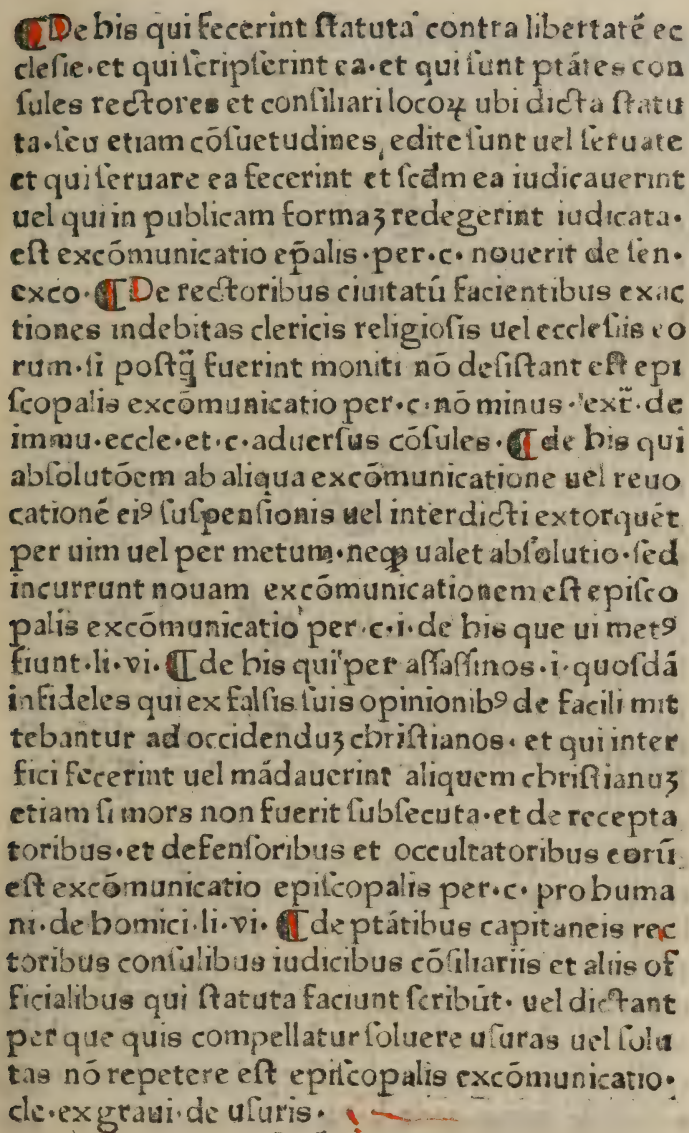 ¶De his qui fecerint ſtatuta contra libertatē ec
cleſie·et qui ſcripſerint ea·et qui ſunt ptātes con
ſules rectores et conſiliari locoꝝ ubi dicta ſtatu
ta·ſeu etiam cōſuetudines, edite ſunt uel ſeruate
et qui ſeruare ea fecerint et ſcd̄m ea iudicauerint
uel qui in publicam formaꝫ redegerint iudicata·
eſt excōmunicatio ep̄alis·per·c· nouerit de ſen·
exco·¶De rectoribus ciuitatū facientibus exac
tiones indebitas clericis religioſis uel eccleſiis eo
rum·ſi poſtq̄ fuerint moniti nō deſiſtant eſt epi
ſcopalis excōmunicatio per·c·nō minus·ext̄·de
immu·eccle·et·c·aduerſus cōſules·¶de his qui
abſolutōem ab aliqua excōmunicatione uel reuo
cationē eiꝰ ſuſpenſionis uel interdicti extorquēt
per uim uel per metum·neqꝫ ualet abſolutio·ſed
incurrunt nouam excōmunicationem eſt epiſco
palis excōmunicatio per·c·i·de his que ui metꝰ
fiunt·li·vi·¶de his qui per aſſaſſinos·i·quoſdā
infideles qui ex falſis ſuis opinionibꝰ de facili mit
tebantur ad occidenduꝫ chriſtianos· et qui inter
fici fecerint uel mādauerint aliquem chriſtianuꝫ
etiam ſi mors non fuerit ſubſecuta·et de recepta
toribus·et defenſoribus et occultatoribus eorū
eſt excōmunicatio epiſcopalis per·c· pro huma
ni·de homici·li·vi· ¶de ptātibus capitaneis rec
toribus conſulibus iudicibus cōſiliariis et aliis of
ficialibus qui ſtatuta faciunt ſcribūt· uel dictant
per que quis compellatur ſoluere uſuras uel ſolu
tas nō repetere eſt epiſcopalis excōmunicatio·
cle·ex graui·de uſuris·